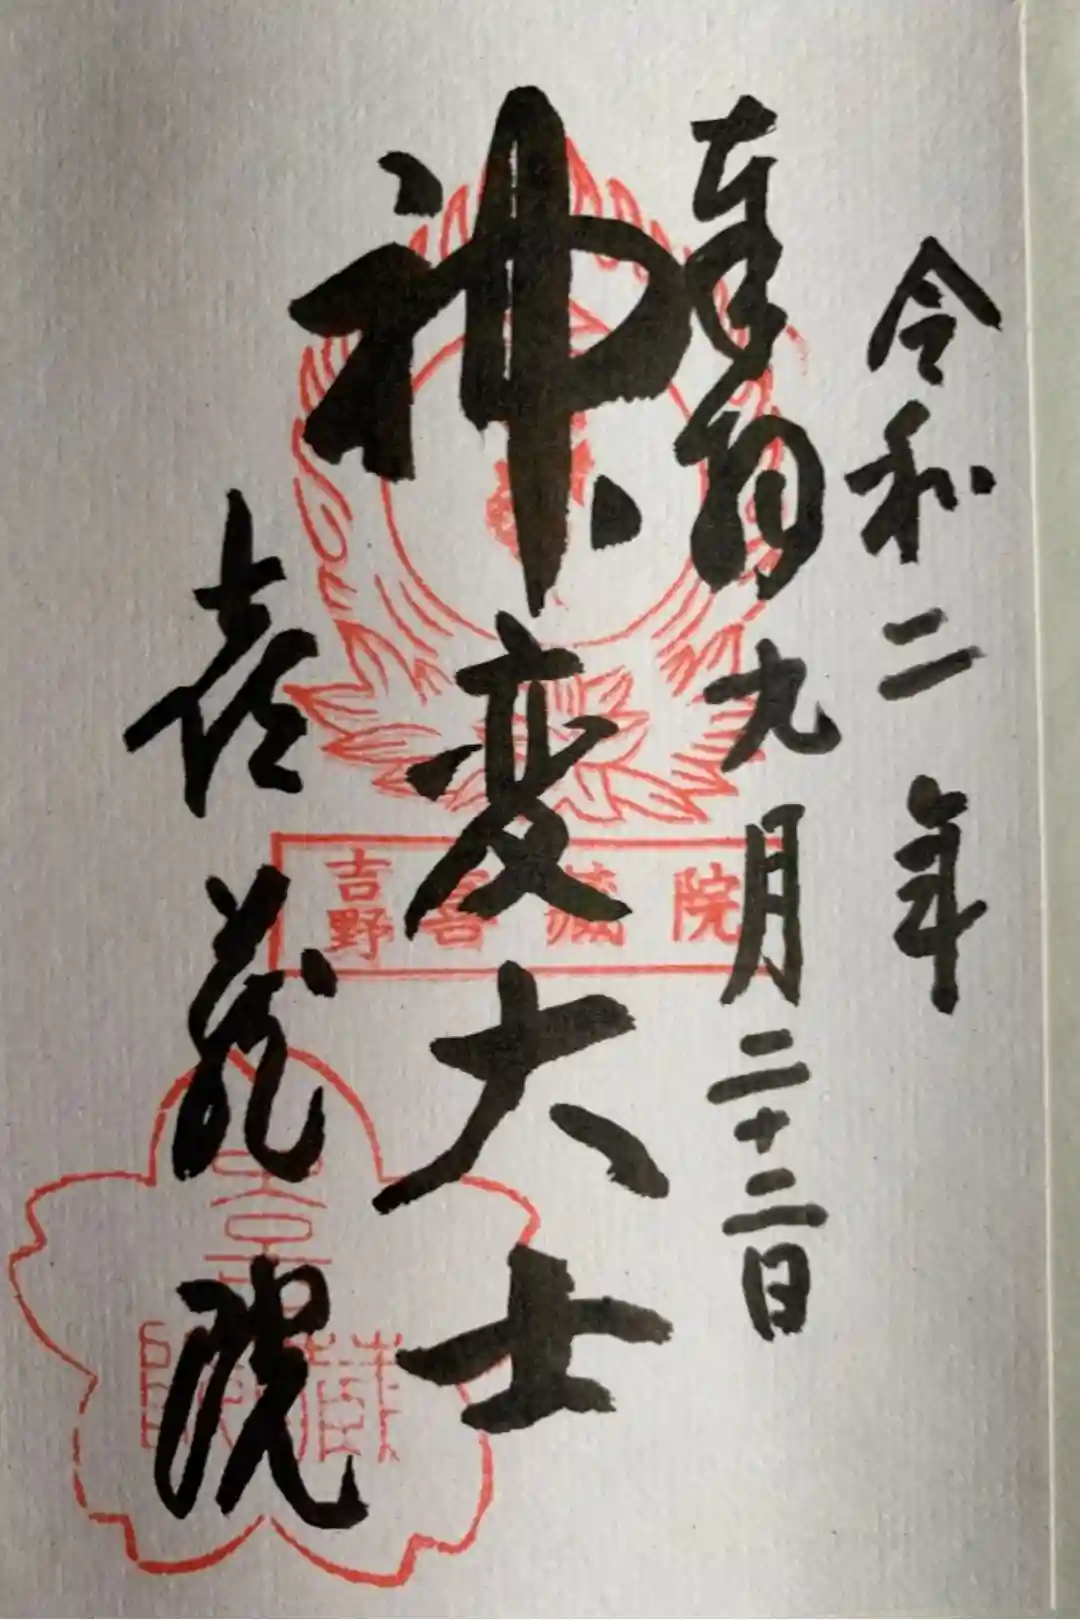 令和二年
奉拝九月二十二日
神変大士
喜蔵院
吉野喜蔵院
喜蔵院